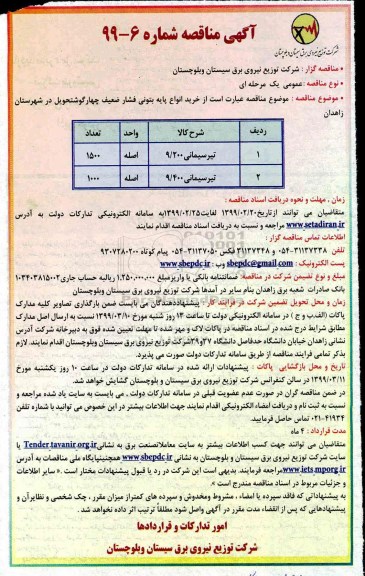 آگهی مناقصه شماره ۶-۹۹
شرکت توزیع نیروی برق سیستان وبلوچستان
• مناقصه گزار : شرکت توزیع نیروی برق سیستان وبلوچستان
• نوع مناقصه :عمومی یک مرحله ای
• موضوع مناقصه : موضوع مناقصه عبارت است از خرید انواع پایه بتونی فشار ضعیف چهارگوشتحویل در شهرستان
زاهدان
ردیف شرح کالا واحد تعداد
۱ تیرسیمانی ۹/۲۰۰ اصله ۱۵۰۰
۲ تیرسیمانی ۹/۴۰۰ اصله ۱۰۰۰
زمان ، مهلت و نحوه دریافت اسناد مناقصه :
متقاضیان می توانند ازتاریخ ۱۳۹۹/۰۲/۲۰ لغایت ۱۳۹۹/۰۲/۲۵به سامانه الکترونیکی تدارکات دولت به آدرس
www.setadiran.ir مراجعه و نسبت به دریافت اسناد مناقصه اقدام نمایند
اطلاعات تماس مناقصه گزار :
تلفن ۳۱۱۳۷۳۳۸-۰۵۴ و ۳۱۱۳۷۳۴۸ فکس ۳۱۱۳۷۰۵۰-۰۵۴ پیام کوتاه ۹۳۰۷۲۸۰۲۰۰
پست الکترونیک : sbepdc@gmail.com وب : www.sbepdc.ir
مبلغ و نوع تضمین شرکت در مناقصه: ضمانتنامه بانکی یا واریزمبلغ ۱,۲۵۰,۰۰۰,۰۰۰ ریالبه حساب جاری۰۱۰۳۴۰۳۸۱۵۰۰۲
بانک صادرات شعبه برق زاهدان بنام سایر در آمدها شرکت توزیع نیروی برق سیستان وبلوچستان
زمان و محل تحویل تضمین شرکت در فرایند کار: پیشنهاددهندگان می بایست ضمن بارگذاری تصاویر کلیه مدارک
پاکات (الف،ب و ج ) در سامانه الکترونیکی دولت تا ساعت ۱۴ روز شنبه مورخ ۱۳۹۹/۰۳/۱۰ نسبت به ارسال اصل مدارک
مطابق شرایط درج شده در اسناد مناقصه در پاکات لاک و مهر شده تا مهلت تعیین شده فوق به دبیرخانه شرکت آدرس
نشانی زاهدان خیابان دانشگاه حدفاصل دانشگاه ۳۷و۳۹شرکت توزیع نیروی برق سیستان وبلوچستان اقدام نمایند. لازم
بذکر تمامی فرایند مناقصه از طریق سامانه تدارکات دولت صورت می پذیرد.
تاریخ و محل بازگشایی پاکات : پیشنهادات ارائه شده در سامانه تدارکات دولت در ساعت ۱۰ روز یکشنبه مورخ
۱۳۹۹/۰۳/۱۱ در سالن کنفرانس شرکت توزیع نیروی برق سیستان و بلوچستان گشایش خواهد شد.
در ضمن مناقصه گران در صورت عدم عضویت قبلی در سامانه تدارکات دولت ، می بایست به سایت یاد شده مراجعه و
نسبت به ثبت نام و دریافت امضاء الکترونیکی اقدام نمایند جهت اطلاعات بیشتر در این خصوص می توانید با شماره تلفن
۴۱۹۳۴-۰۲۱ تماس حاصل فرمایید.
مدت قرارداد : ۴ ماه
متقاضیان می توانند جهت کسب اطلاعات بیشتر به سایت معاملاتصنعت برق به نشانی Tender.tavanir.org.ir یا
سایت شرکت توزیع نیروی برق سیستان و بلوچستان به نشانی www.sbepdc.ir همچنینپایگاه ملی مناقصات به آدرس
www.iets.mporg.ir مراجعه فرمایند. بدیهی است این شرکت در رد یا قبول پیشنهادات مختار است . « سایر اطلاعات
و جزئیات مربوط در اسناد مناقصه مندرج است »
به پیشنهاداتی که فاقد سپرده یا امضاء ، مشروط ومخدوش و سپرده های کمتراز میزان مقرر ، چک شخصی و نظایرآن و
پیشنهادهایی که پس از انقضاء مدت مقرر در آگهی واصل شود مطلقاً ترتیب اثر داده نخواهد شد.
امور تدارکات و قراردادها
شرکت توزیع نیروی برق سیستان وبلوچستان